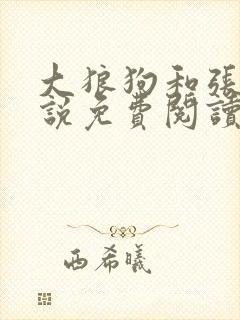 大狼狗和張
說免費閱讀
西希曦